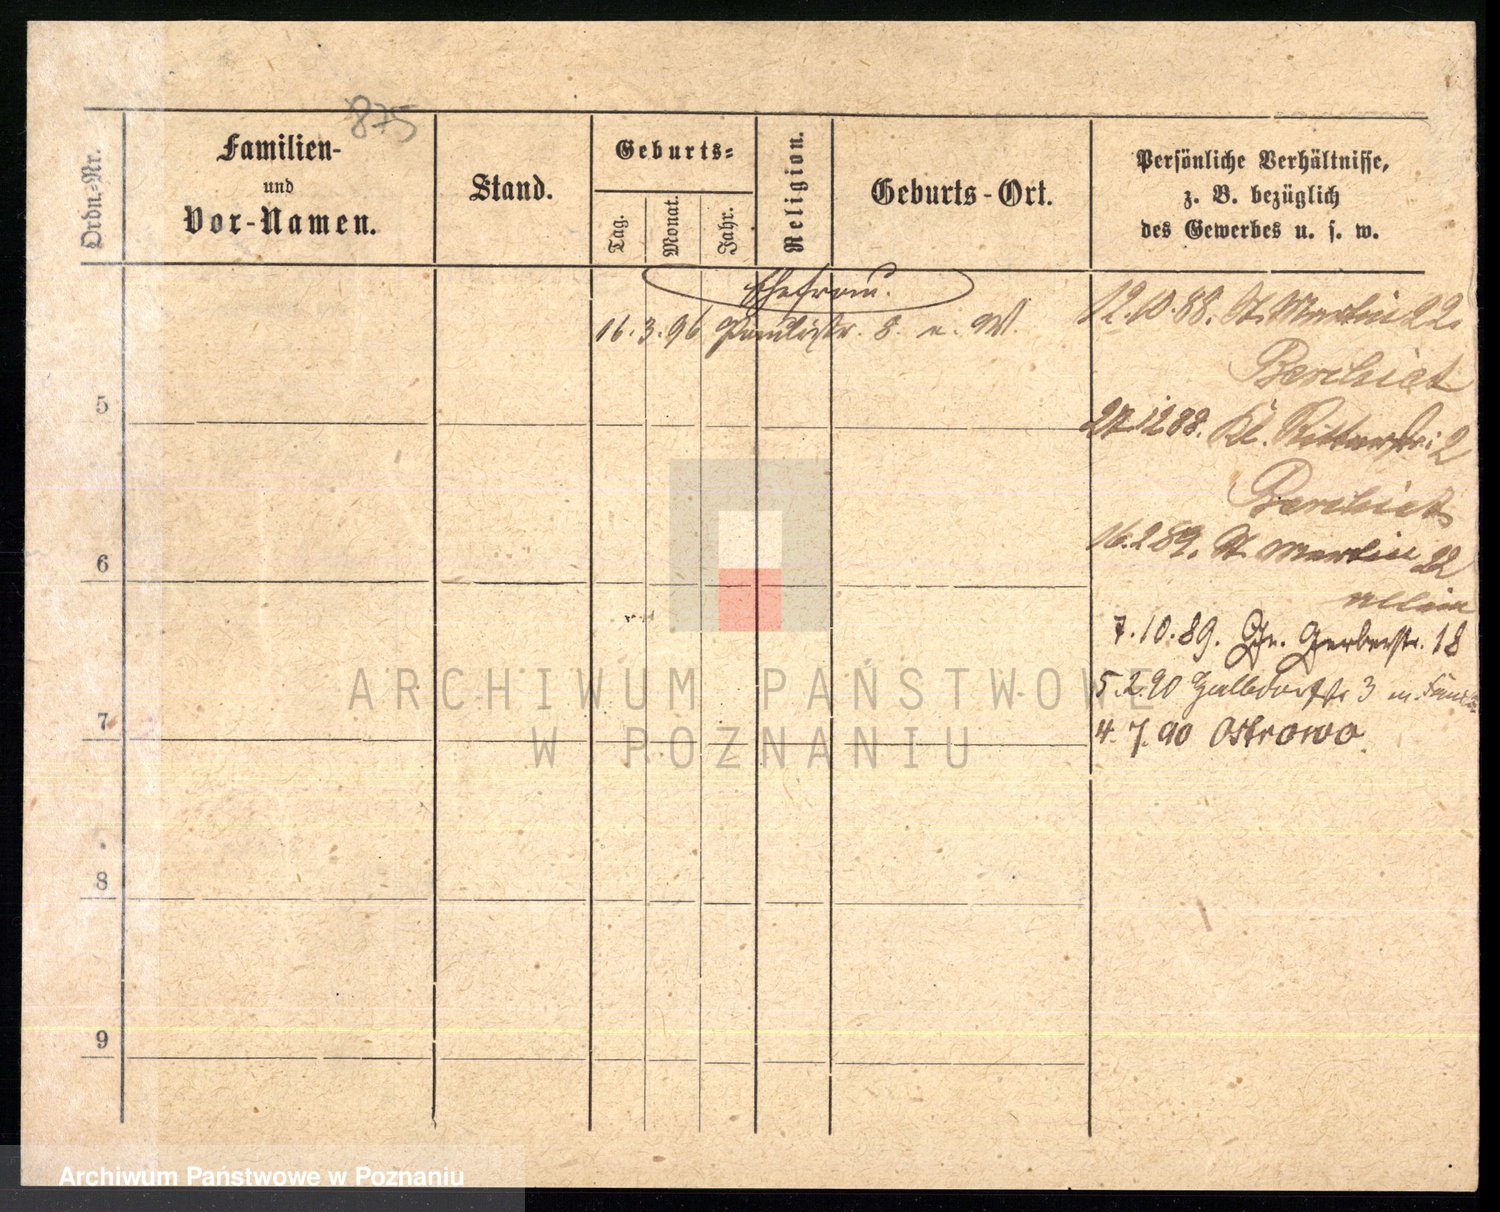 875
Ordn.-Nr.
Familien-
und
Vor-Namen.
Stand.
Geburts-
Tag.
Monat.
Jahr.
Religion.
Geburts-Ort.
Persönliche Verhältnisse,
z. B. bezüglich
des Gewerbes u. s. w.
Ehefrau.
16.3.96 Paulistr. 8. n. W.
12.10.88. St. Martin 22.
27.12 88. Kl. Ritterstr. 2
16.2 89. St. Martin 22
allein
7.10.89. Gr. Gerberstr. 18
5.2.90 Halbdorfstr 3 m.
4.7.90 Ostrowo.
5
6
7
8
9
ARCHIWUM PAŃSTWOWE
W POZNANIU
Archiwum Państwowe w Poznaniu